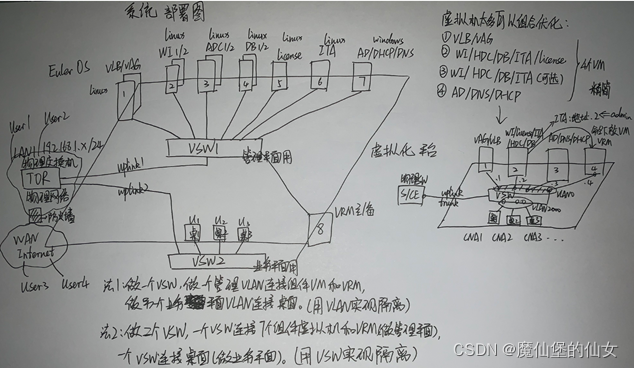 系统部署图
Euler OS
Linux
VLB/VAG
Linux
WI 1/2
Linux
ADC 1/2
Linux
DB 1/2
Linux
license
Linux
ITA
windows
AD/DHCP/DNS
1
2
3
4
5
6
7
User1
User2
LAN1 192.168.1.x/24
物理交换机
TOR
物理网络
防火墙
WAN
Internet
User3
User4
uplink1
uplink2
VSW1
管理平面用
虚拟化平台
VRM主备
8
U1
U2
U3
VSW2
业务平面用
法1:做一个VSW,做一个管理VLAN连接组件VM和VRM,
做另一个业务平面VLAN连接桌面。(用VLAN实现隔离)
法2:做2个VSW,一个VSW连接7个组件虚拟机和VRM(做管理平面),
一个VSW连接桌面(做业务平面)。(用VSW实现隔离)
虚拟机
组合优化:
① VLB/VAG
② WI/HDC/DB/ITA/license
③ WI/HDC/DB/ITA(可选)
④ AD/DNS/DHCP
VM
ITA
VAG/VLB
WI/license/ITA
HDC/DB
AD/DNS/DHCP
VRM
1
2
3
4
S/CE
uplink
trunk
VSW
CNA1
CNA2
CNA3 ...
CSDN @魔仙堡的仙女